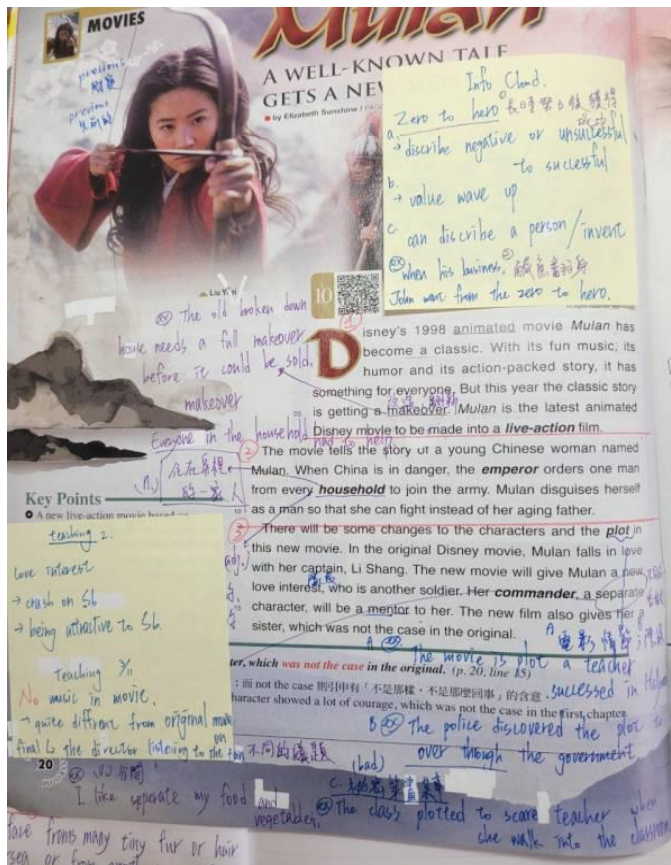 MOVIES
Mulan
A WELL-KNOWN TALE
GETS A NEW
by Elizabeth Sunshine
precious
previous
Info Cloud.
Zero to hero 長時努力後獲得
成功
a.
→ discribe negative or unsuccessful
to successful
b.
→ value wave up
c can discribe a person/invent
ex when his business, 鹹魚翻身
John went from the zero to hero.
Liu Yifei
10
ex The old broken down
house needs a full makeover
before it could be sold.
makeover
Everyone in the household had to help.
住在房裡
的一家人
(n.)
1
Disney's 1998 animated movie Mulan has
become a classic. With its fun music, its
humor and its action-packed story, it has
something for everyone. But this year the classic story
05 is getting a makeover. Mulan is the latest animated
Disney movie to be made into a live-action film.
2
The movie tells the story of a young Chinese woman named
Mulan. When China is in danger, the emperor orders one man
from every household to join the army. Mulan disguises herself
10 as a man so that she can fight instead of her aging father.
3
There will be some changes to the characters and the plot in
this new movie. In the original Disney movie, Mulan falls in love
with her captain, Li Shang. The new movie will give Mulan a new
love interest, who is another soldier. Her commander, a separate
15 character, will be a mentor to her. The new film also gives her a
sister, which was not the case in the original.
Key Points
A new live-action movie based on
teaching 2.
love interest
→ crush on Sb
→ being attractive to Sb.
Teaching 3/11
No music in movie.
→ quite diffrent from original movie
final is the director listening to the fan
adj.
ter, which was not the case in the original. (p. 20, line 15)
；而 not the case 則引申有「不是那樣，不是那麼回事」的含意。
haracter showed a lot of courage, which was not the case in the first chapter.
A 電影情節
A ex The movie is plot a teacher
successed in
B ex The police discovered the plot to
over though the government
(bad)
C.
ex The class plotted to scare teacher when
she walk into the classroom
不同的議題
ex 分開
I like seperate my food and
vegetables.
20
fave froms many tiny fur or hair
sea or from